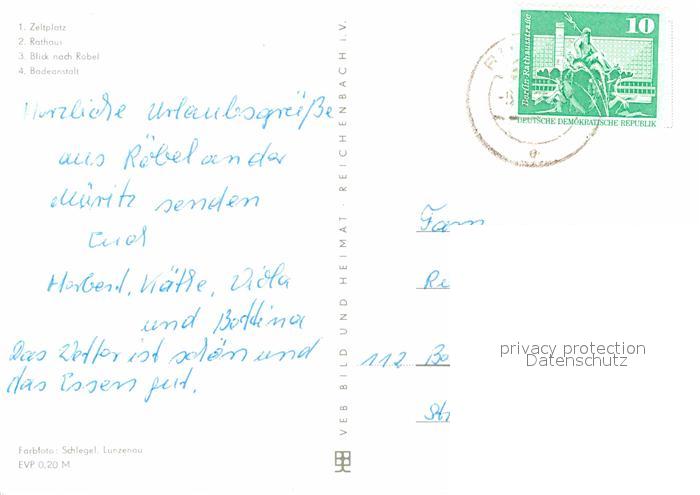 1. Zeltplatz
2. Rathaus
3. Blick nach Röbel
4. Badeanstalt
Herzliche Urlaubsgrüße
aus Röbel an der
Müritz senden
Euch
Herbert, Käthe, Viola
und Bettina
Das Wetter ist schön und
das Essen gut.
Farbfoto: Schlegel, Lunzenau
EVP 0,20 M
VEB BILD UND HEIMAT · REICHENBACH i. V.
10
Berlin-Rathausstraße
DEUTSCHE DEMOKRATISCHE REPUBLIK
Fam
Re
112 Be
Str
privacy protection
Datenschutz